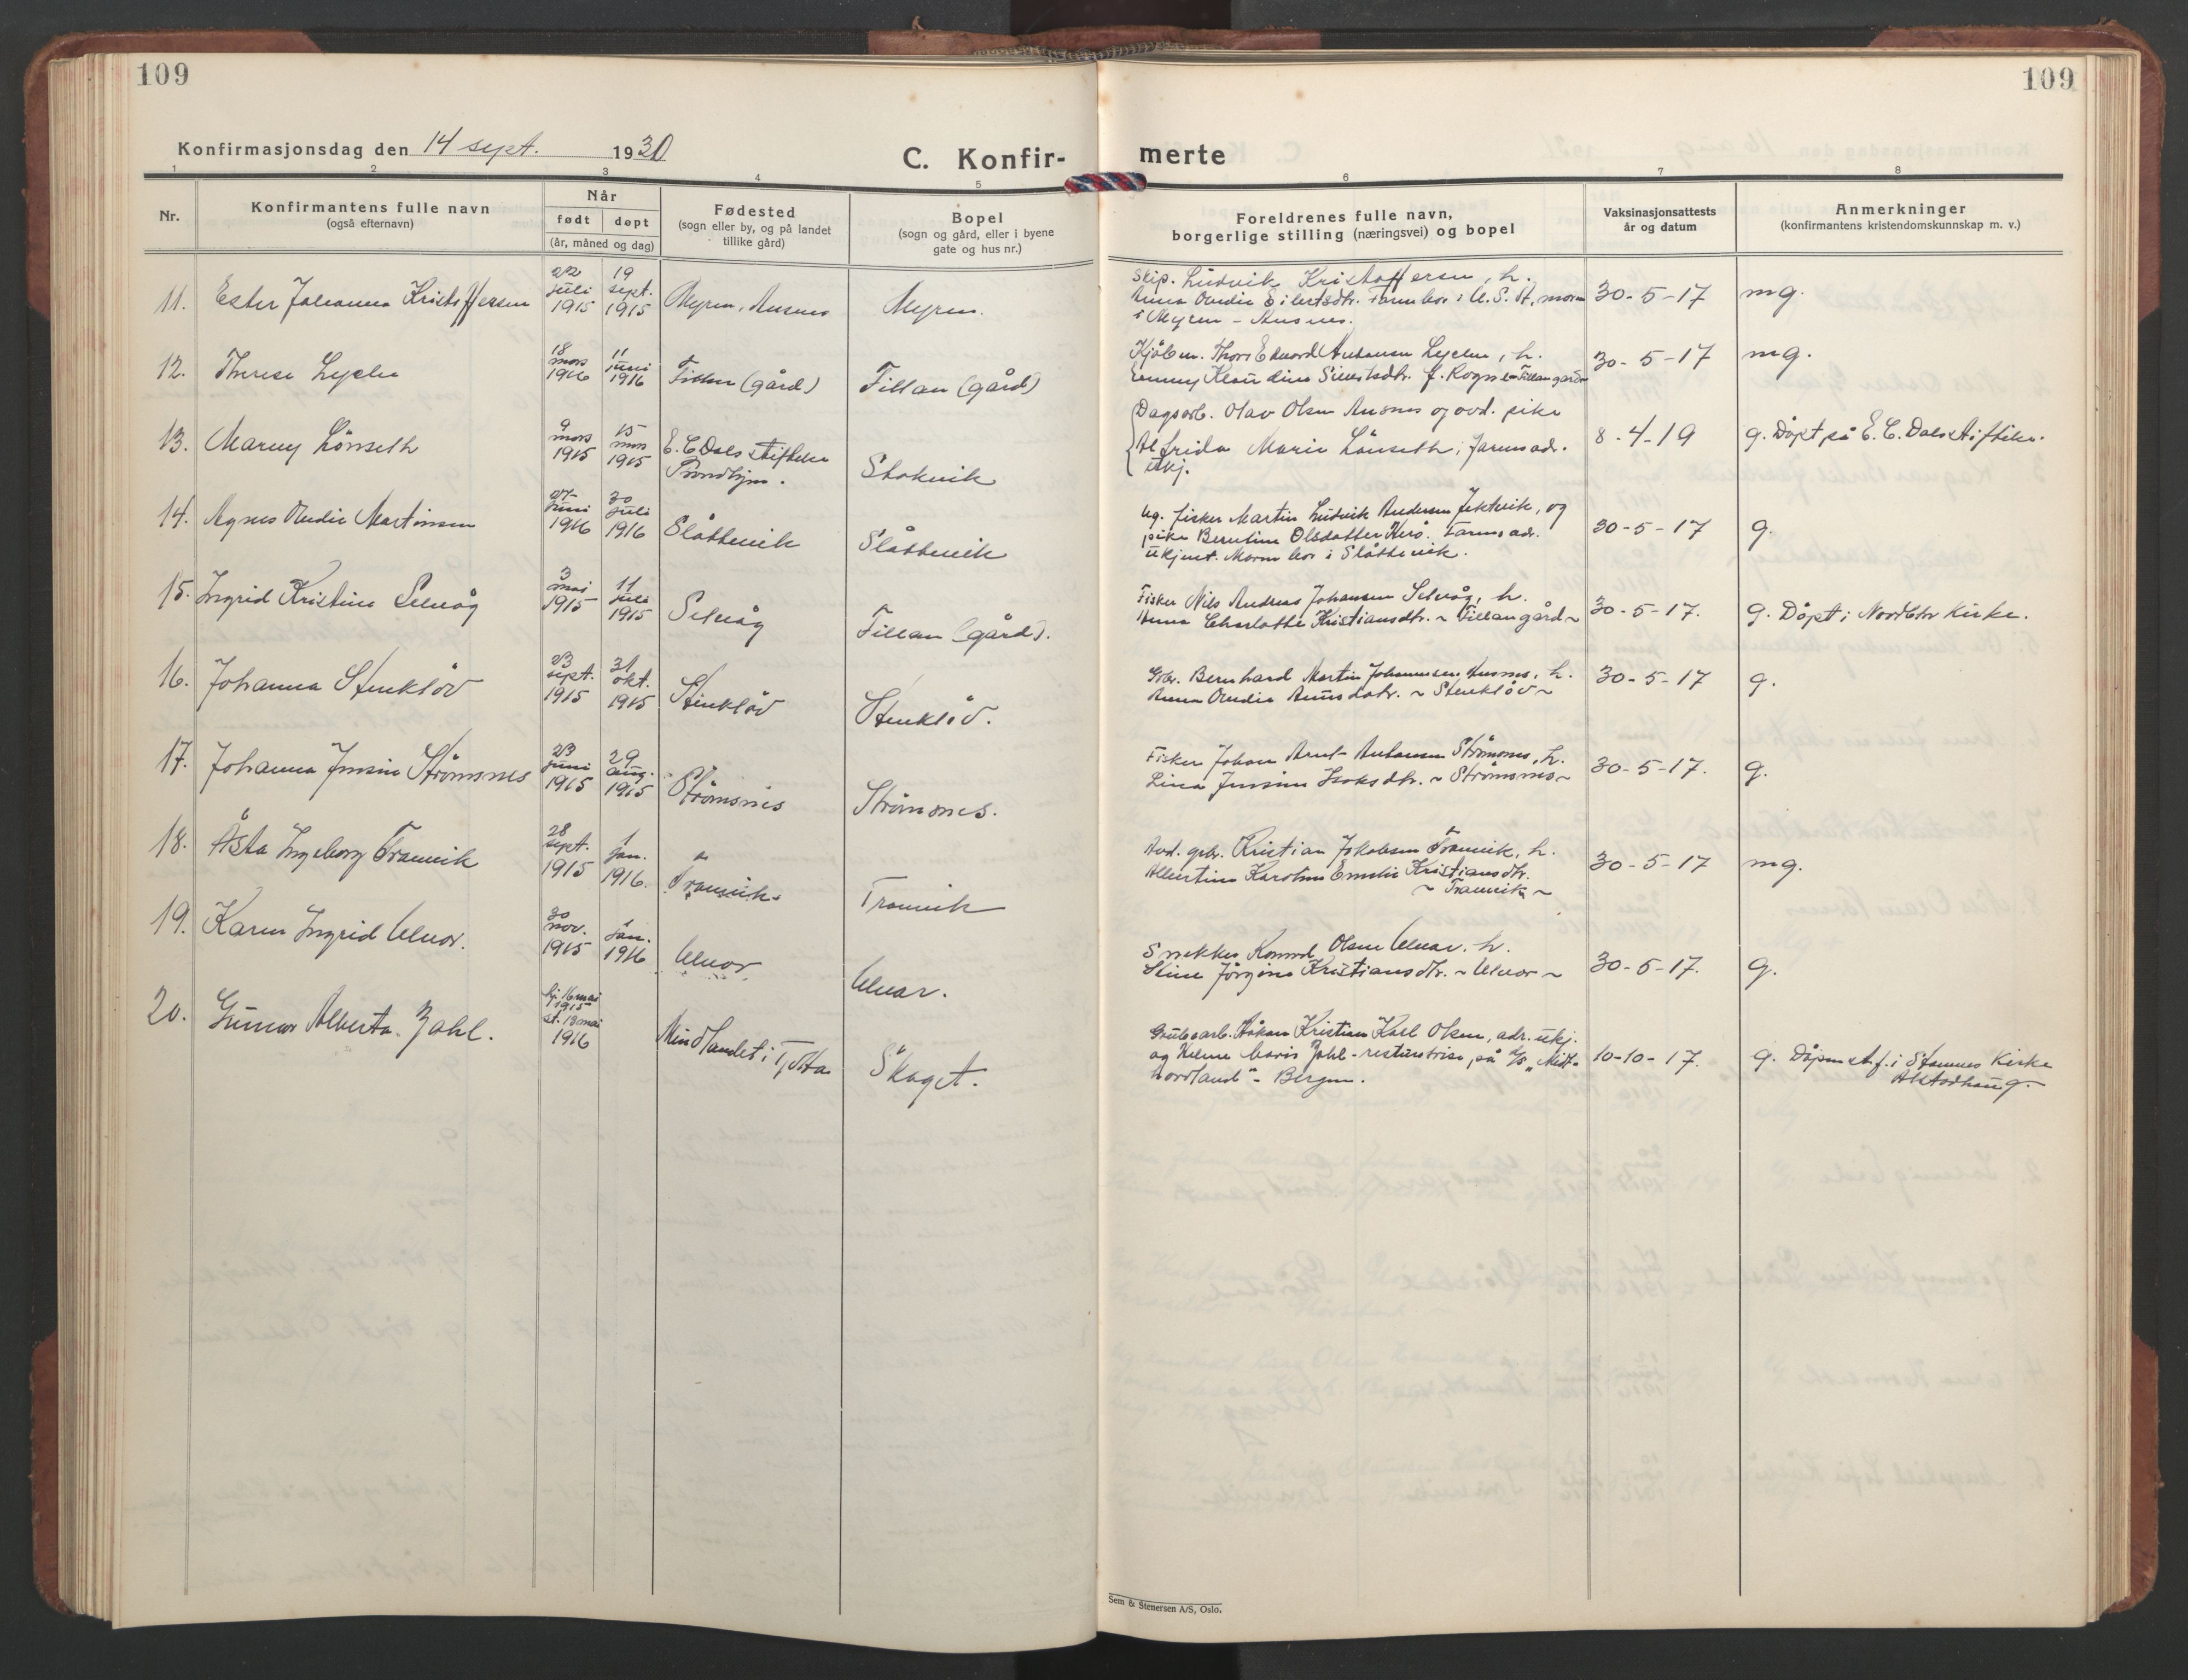 109
109
Konfirmasjonsdag den 14 sept. 1930
C. Konfir-
merte
1 2 3 4 5 6 7 8
Nr.
Konfirmantens fulle navn
(også efternavn)
Når
født døpt
(år, måned og dag)
Fødested
(sogn eller by, og på landet
tillike gård)
Bopel
(sogn og gård, eller i byene
gate og hus nr.)
Foreldrenes fulle navn,
borgerlige stilling (næringsvei) og bopel
Vaksinasjonsattests
år og datum
Anmerkninger
(konfirmantens kristendomskunnskap m. v.)
11. Ester Johanna Kristoffersen
22 juli 1915
19 sept. 1915
Myren, Ansnes
Myren.
Skip. Ludvik Kristoffersen, h.
Anna Eilertsdtr. Faren bor i U. S. A, moren
i Myren - Ansnes.
30-5-17
mg.
12. Therese Lyslu
18 mars 1916
11 juni 1916
Fillan (gård)
Fillan (gård)
Kjøbm. Thors Edvard Antonsen h.
Emmy Klaudine f. Fillan gård
30-5-17
mg.
13. Marny Lönseth
9 mars 1915
15 1915
E. C. Dals stiftelse
Trondhjem.
Stokvik
Dagsarb. Olav Olsen Ansnes og ovd. pike
Alfrida Marie Lönseth; farens adr.
ukj.
8-4-19
g. Döpt på E. C. Dals stiftelse.
14. Agnes Martinsen
27 juni 1916
30 juli 1916
Slåttevik
Slåttevik
ug. fisker Martin Ludvik Andersen Jektvik, og
pike Berntine Olsdatter Farens adr.
ukjent. Moren bor i Slåttevik.
30-5-17
g.
15. Ingrid Kristine Selvåg
3 mai 1915
11 juli 1915
Selvåg
Fillan (gård).
Fisker Nils Andreas Johansen Selvåg, h.
Anna Charlotte Kristiansdtr. ~ Fillan gård ~
30-5-17.
g. Döpt i Kirke.
16. Johanna Stenklöv
23 sept. 1915
31 okt. 1915
Stenklöv
Stenklöv.
Gbr. Bernhard Martin Johannesen h.
Anna ~ Stenklöv ~
30-5-17
g.
17. Johanna Jensine Strömsnes
23 juni 1915
29 aug. 1915
Strömsnes
Strömsnes.
Fisker Johan Arnt Antonsen Strömsnes, h.
Lina Jensine Isaksdtr. ~ Strömsnes ~
30-5-17.
g.
18. Åsta Ingeborg Tranvik
28 sept. 1915
1 jan. 1916.
Tranvik
Tranvik
gbr. Kristian Jakobsen Tranvik, h.
Albertine Karoline Emelie Kristiansdtr.
~ Tranvik ~
30-5-17
mg.
19. Karen Ingrid Ulvar.
30 nov. 1915
1 jan. 1916
Ulvar
Ulvar.
Snekker Konrad Olsen Ulvar. h.
Stine Jörgine Kristiansdtr. ~ Ulvar ~
30-5-17.
g.
20. Gunvor Alberta Zahl.
hj. 16 mai 1915
st. 18 mai 1916
Mindlandet i Tjötta
Skaget.
Grubearb. Håkon Kristian Karl Olsen, adr. ukj.
og Zahl - på D/S "Midt-
nordland" - Bergen.
10-10-17.
g. Döpen stf. i Stamnes Kirke
Alstadhaug.
Sem & Stenersen A/S, Oslo.